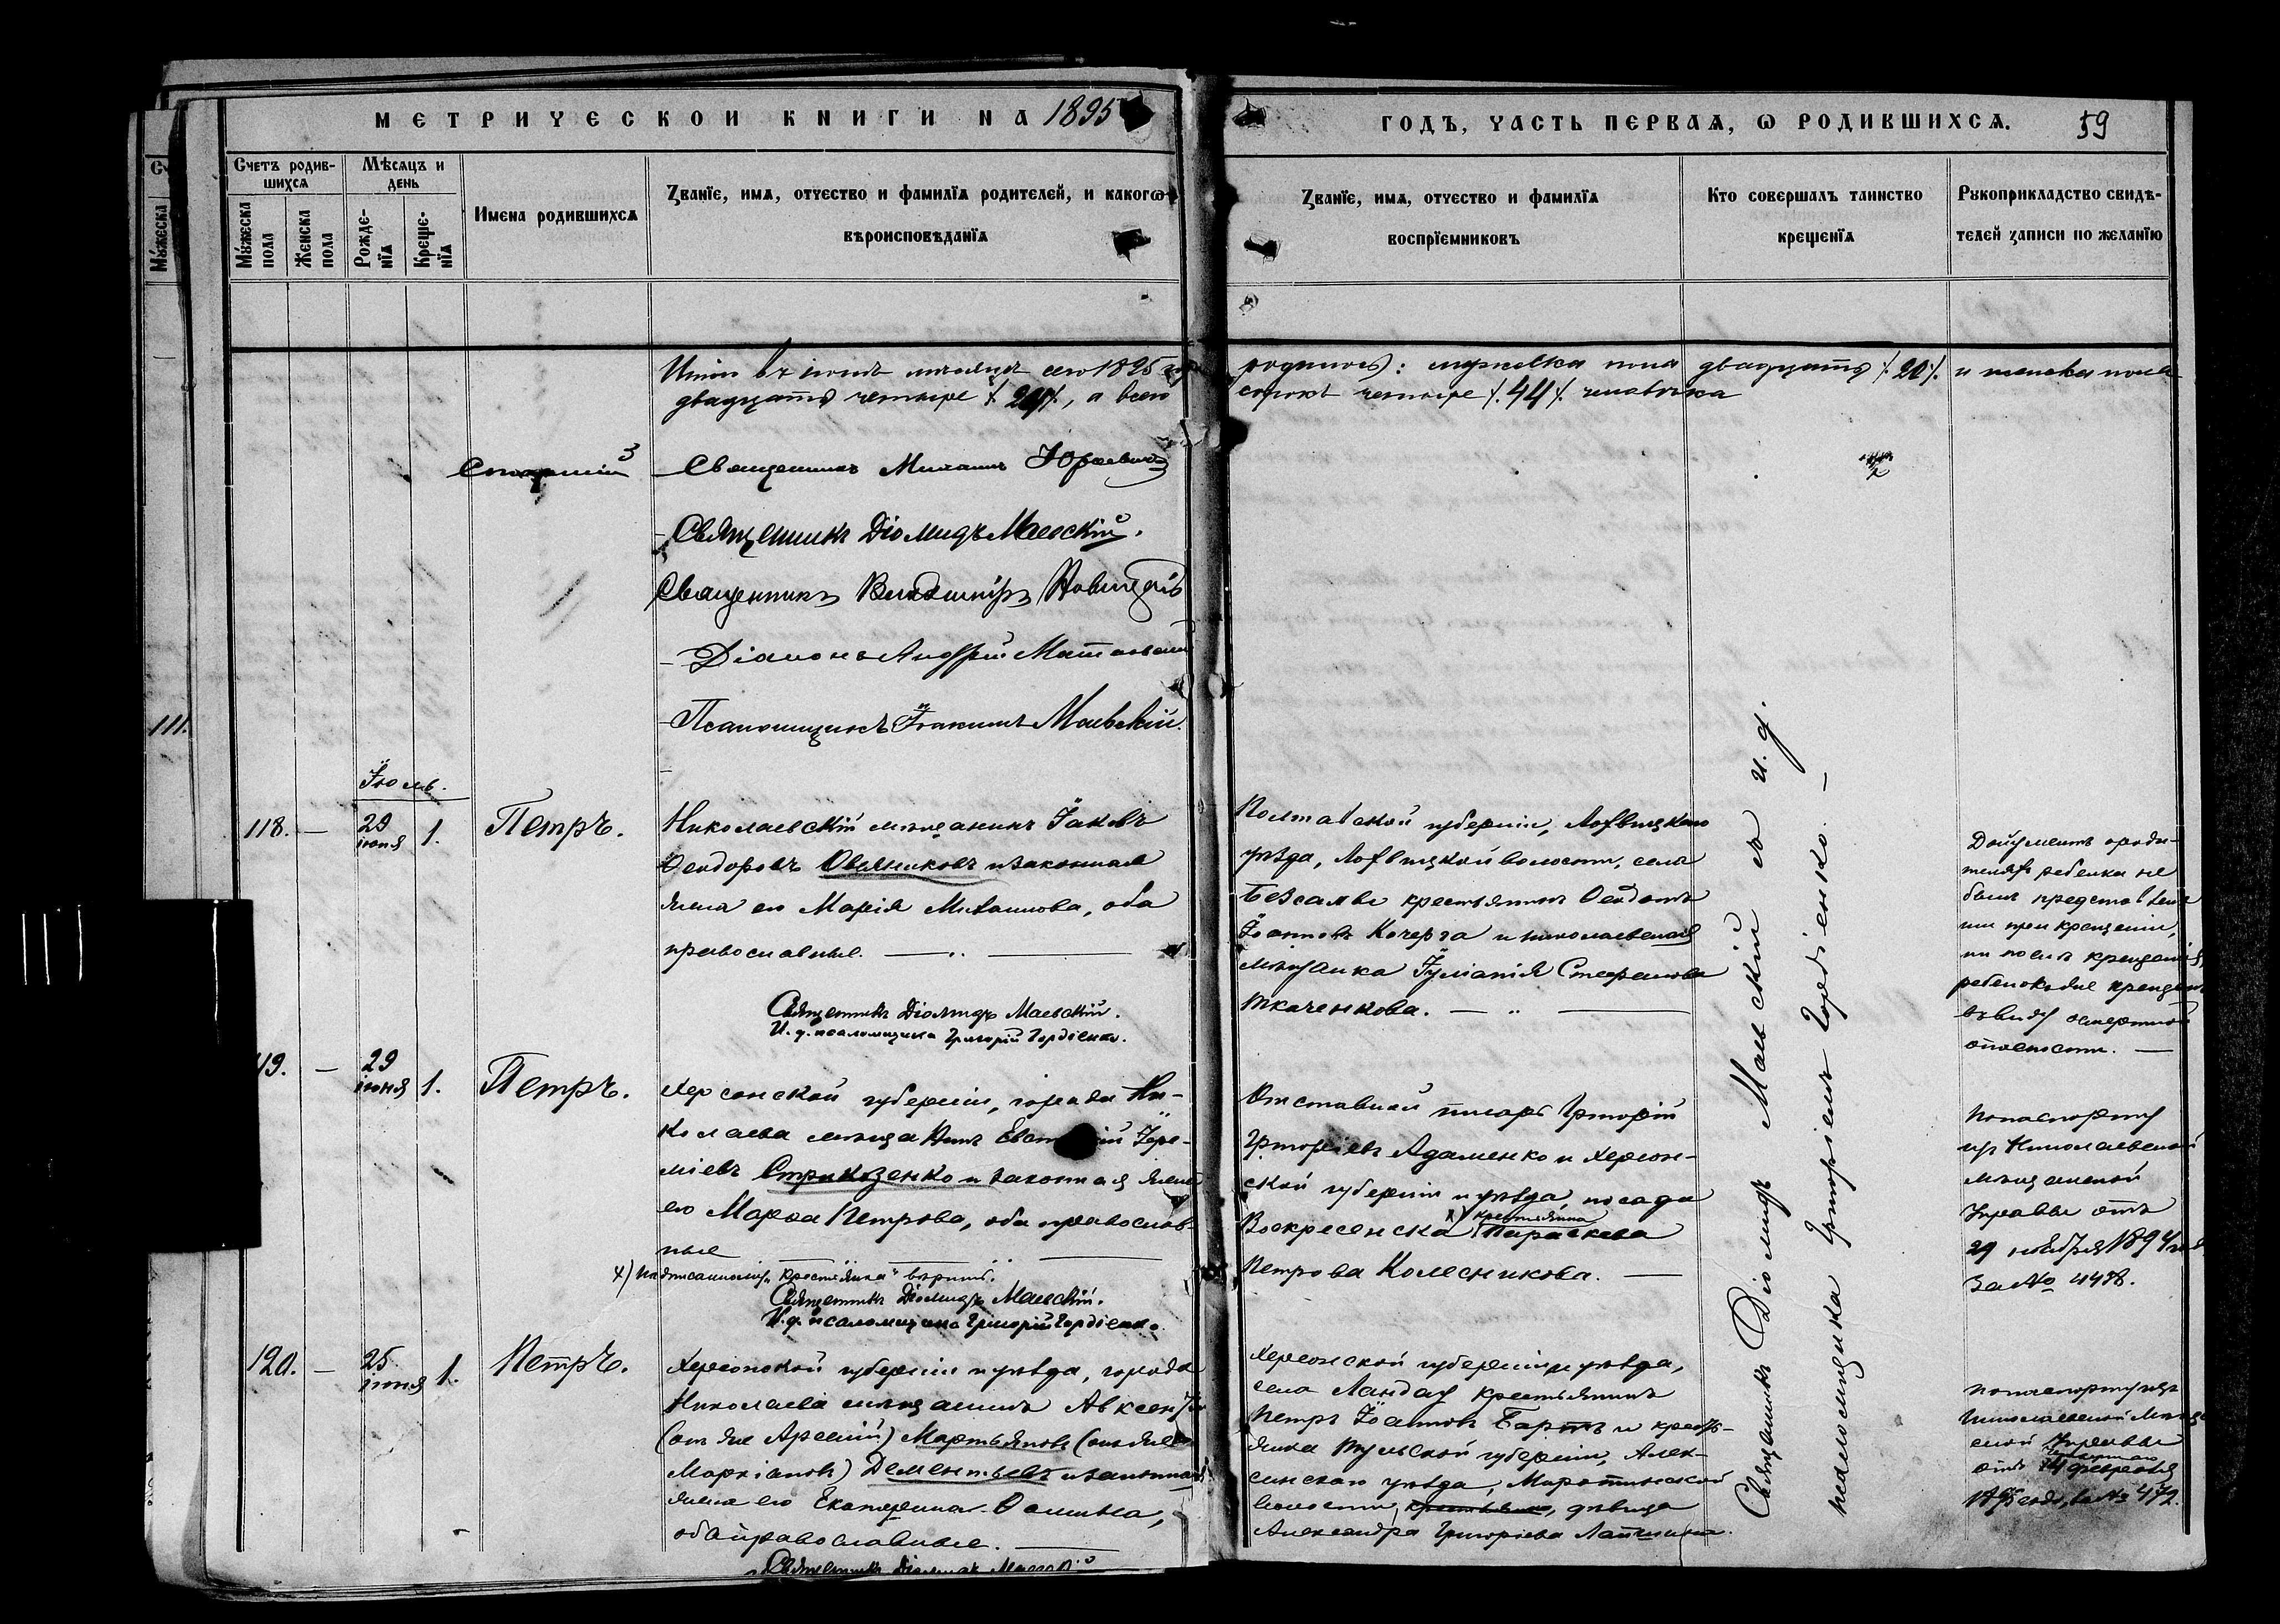 МЕТРИЧЕСКОЙ КНИГИ НА 1895
ГОДЪ, ЧАСТЬ ПЕРВАЯ, Ѡ РОДИВШИХСЯ. 59
Счетъ родив-
шихся
Мѹжеска пола
Женска пола
Мѣсяцъ и
день
Рожде-
нїя
Креще-
нїя
Имена родившихся
Званїе, имя, отчество и фамилїя родителей, и какогѡ
вѣроисповѣданїя
Званїе, имя, отчество и фамилїя
воспрїемниковъ
Кто совершалъ таинство
крещенїя
Рѹкоприкладство свидѣ-
телей записи по желанїю
Итого въ іюнѣ мѣсяцѣ сего 1895 года родилось: мужеска пола двадцать /. 20 /. и женска пола
двадцать четыре /. 24 /., а всего сорокъ четыре /. 44 /. человѣка
Священникъ Михаилъ Юркевичъ
Священникъ Діомидъ Маевскій.
Священникъ Владиміръ
Діаконъ Андрей
Псаломщикъ Іоакимъ Маевскій.
111.
Іюль.
118. — 29 іюня 1. Петръ.
Николаевскій мѣщанинъ Іаковъ
Ѳеодоровъ Овсянниковъ и законная
жена его Марія Михаилова, оба
православные.
Священникъ Діомидъ Маевскій.
И. д. псаломщика Григорій Гордіенко.
Полтавской губерніи, Лохвицкаго
уѣзда, Лохвицкой волости, села
Безсалы крестьянинъ Ѳеодотъ
Іоанновъ Кочерга и николаевская
мѣщанка Іуліанія Стефанова
Ткаченкова.
Документъ о роди-
теляхъ ребенка не
былъ представленъ
ни при крещеніи,
ни послѣ крещенія,
ребенокъ же крещенъ
въ виду смертной
опасности. —
119. — 29 іюня 1. Петръ.
Херсонской губерніи, города Ни-
колаева мѣщанинъ Іере-
міевъ Стрикозенко и законная жена
его Марѳа Петрова, оба православ-
ные
х) Надписанному „крестьянка" вѣрить.
Священникъ Діомидъ Маевскій.
И. д. псаломщика Григорій Гордіенко.
Отставной писарь Григорій
Григоріевъ Адаменко и Херсон-
ской губерніи и уѣзда посада
Воскресенска х) крестьянка Параскева
Петрова Колесникова. —
По паспорту
изъ Николаевской
мѣщанской
Управы отъ
29 ноября 1894 года
за № 4438.
120. — 25 іюня 1. Петръ.
Херсонской губерніи и уѣзда, города
Николаева мѣщанинъ Авксентій
(онъ же Арсеній) Мартьяновъ (онъ же
Маркіановъ) Дементьевъ и законная
жена его Екатерина Ѳомина,
оба православные.
Священникъ Діомидъ Маевскій
Херсонской губерніи и уѣзда,
села Ландау крестьянинъ
Петръ Іоанновъ Бартъ и кресть-
янка Тульской губерніи, Алек-
синскаго уѣзда,
волости, дѣвица
Александра Григоріева
По паспорту изъ
Николаевской Мѣщан-
ской Управы
отъ 14 февраля
1895 года, за № 472.
Священникъ Діомидъ Маевскій съ и. д.
псаломщика Григоріемъ Гордіенко. —